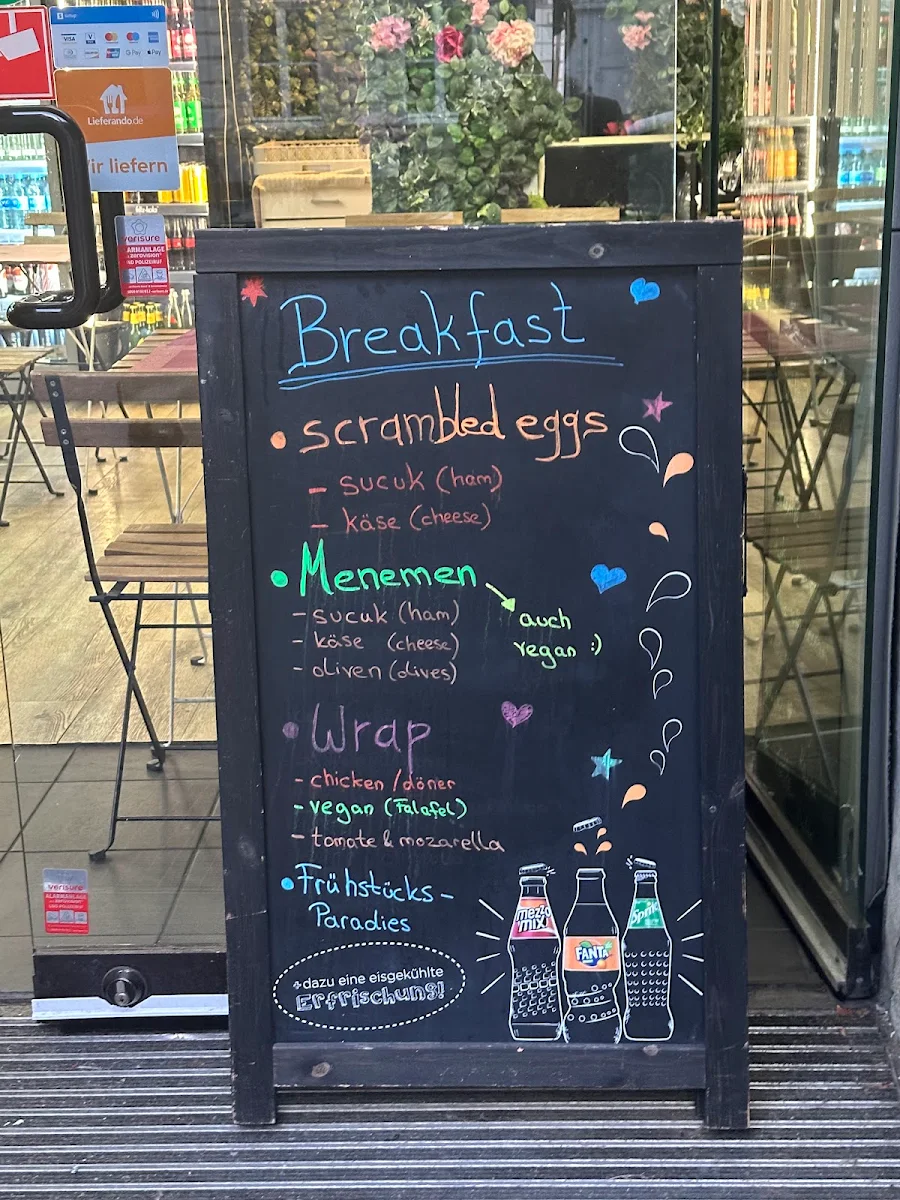 VISA
G Pay
Pay
Lieferando.de
Wir liefern
verisure
ALARMANLAGE
Breakfast
• scrambled eggs
- sucuk (ham)
- käse (cheese)
• Menemen
auch
vegan :)
- sucuk (ham)
- käse (cheese)
- oliven (olives)
• Wrap
- chicken / döner
- vegan (Falafel)
- tomate & mozarella
• Frühstücks-
Paradies
+dazu eine eisgekühlte
Erfrischung!
mezzo
mix
FANTA
Sprite
verisure
ALARMANLAGE